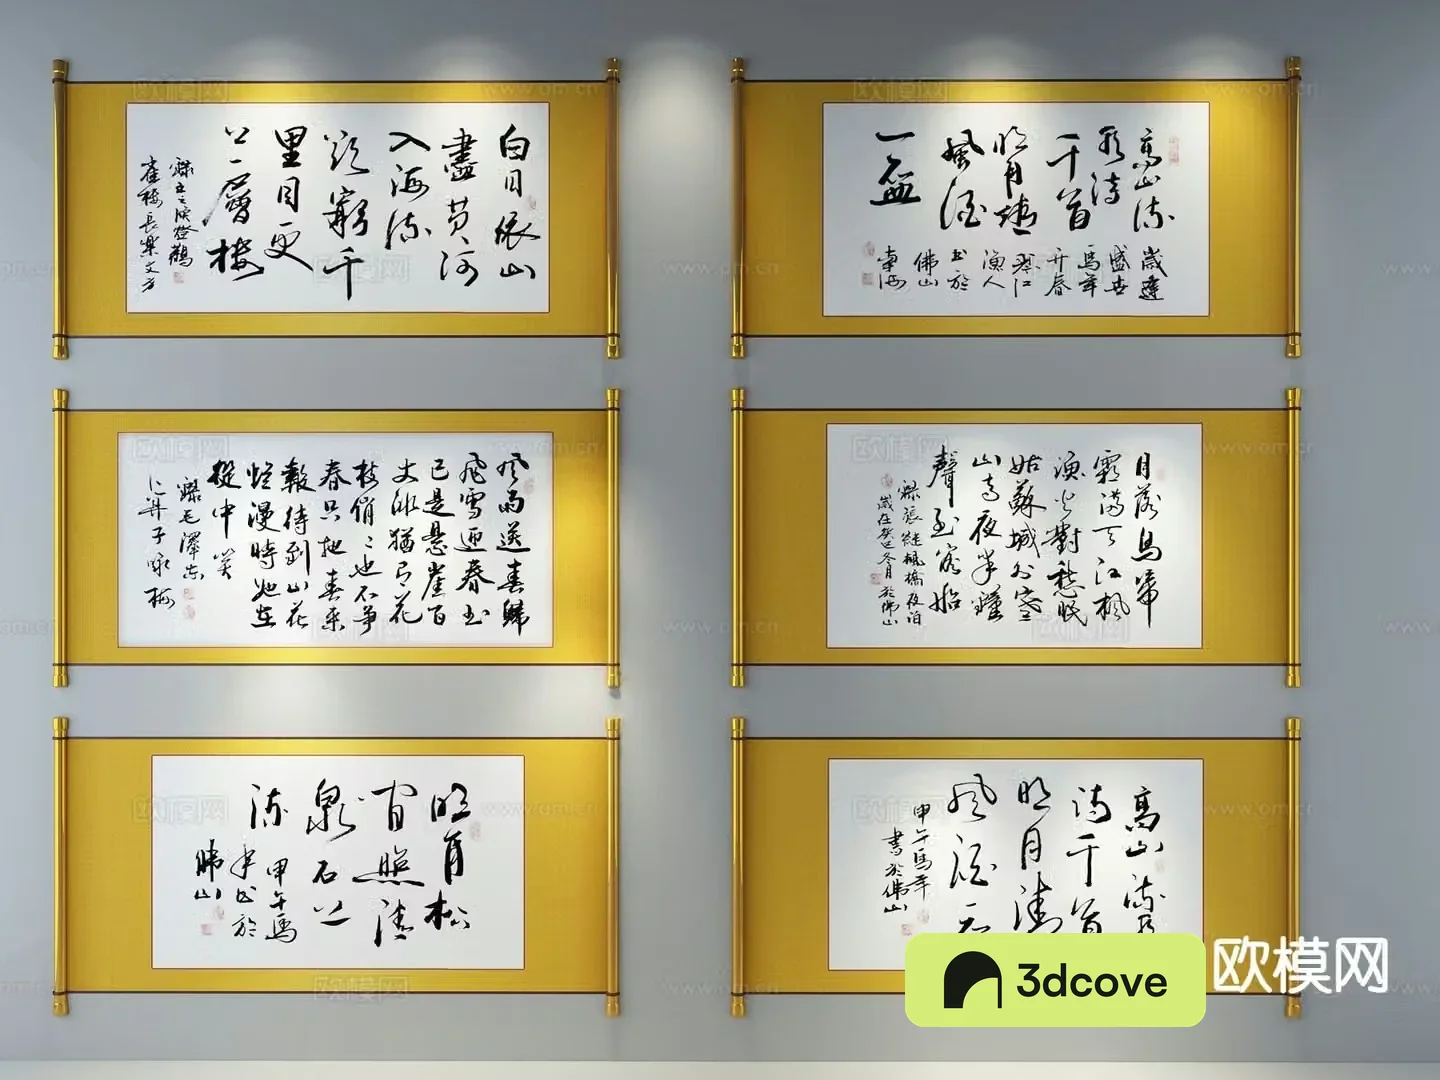 白日依山
盡黄河
入海流
欲窮千
里目更
上一層樓
錄王之渙登鸛
雀樓長樂文方
高山流
水詩
千首
明月清
風酒
一壺
歲逢
盛世
馬年
开春
漁人
书於
佛山
南海
风雨送春歸
飛雪迎春到
已是懸崖百
丈冰猶有花
枝俏俏也不爭
春只把春來
報待到山花
爛漫時她在
叢中笑
錄毛澤東
卜算子咏梅
月落烏啼
霜滿天江楓
漁火對愁眠
姑蘇城外寒
山寺夜半鐘
聲到客船
錄張継楓橋夜泊
歲在癸巳冬月於佛山
明月松
間照清
泉石上
流
甲午馬
年书於
佛山
高山流水
詩千首
明月清
风酒一
甲午馬年
書於佛山
3dcove
欧模网
欧模网
www.om.cn